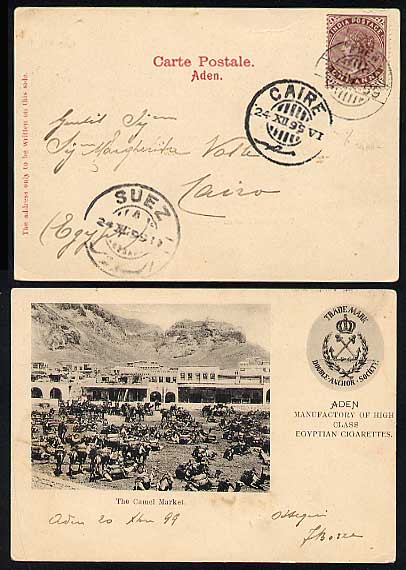 INDIA POSTAGE
Carte Postale.
Aden.
CAIRE
24 XII 99 VI
The address only to be written on this side.
Cairo
SUEZ
24 XII 99
(Egypt)
TRADE MARK
DOUBLE · ANCHOR · SOCIETY
ADEN
MANUFACTORY OF HIGH
CLASS
EGYPTIAN CIGARETTES.
The Camel Market.
Aden 20 Xbre 99
Ossequi